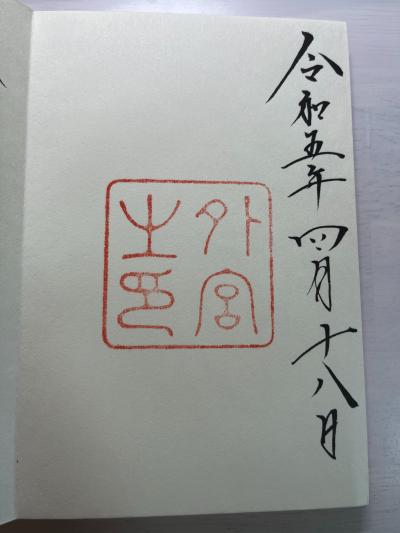 令和五年四月十八日
外宮
之印